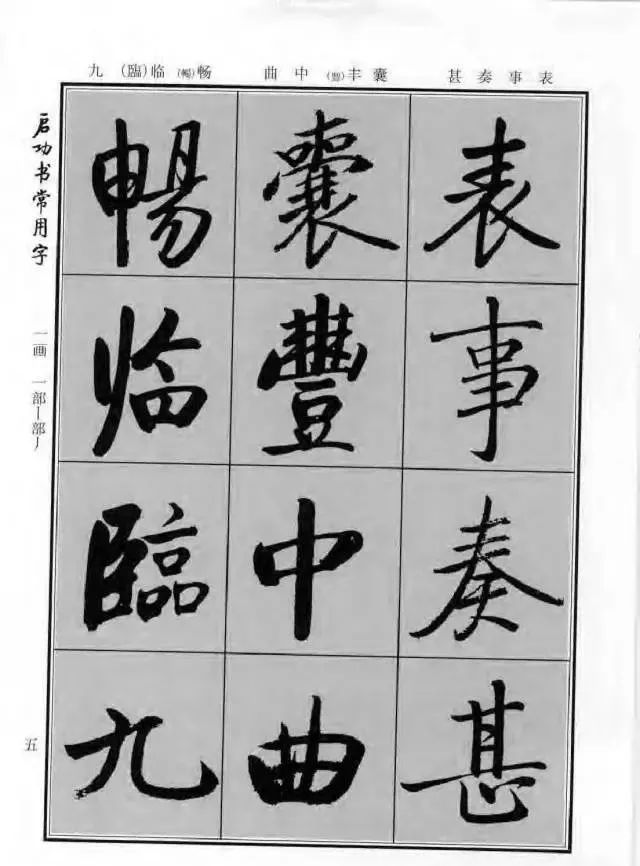 表事奏甚 囊丰(豐)中曲 畅(暢)临(臨)九
表事奏甚
囊豐中曲
暢临臨九
启功书常用字
一画 一部丨部丿
五